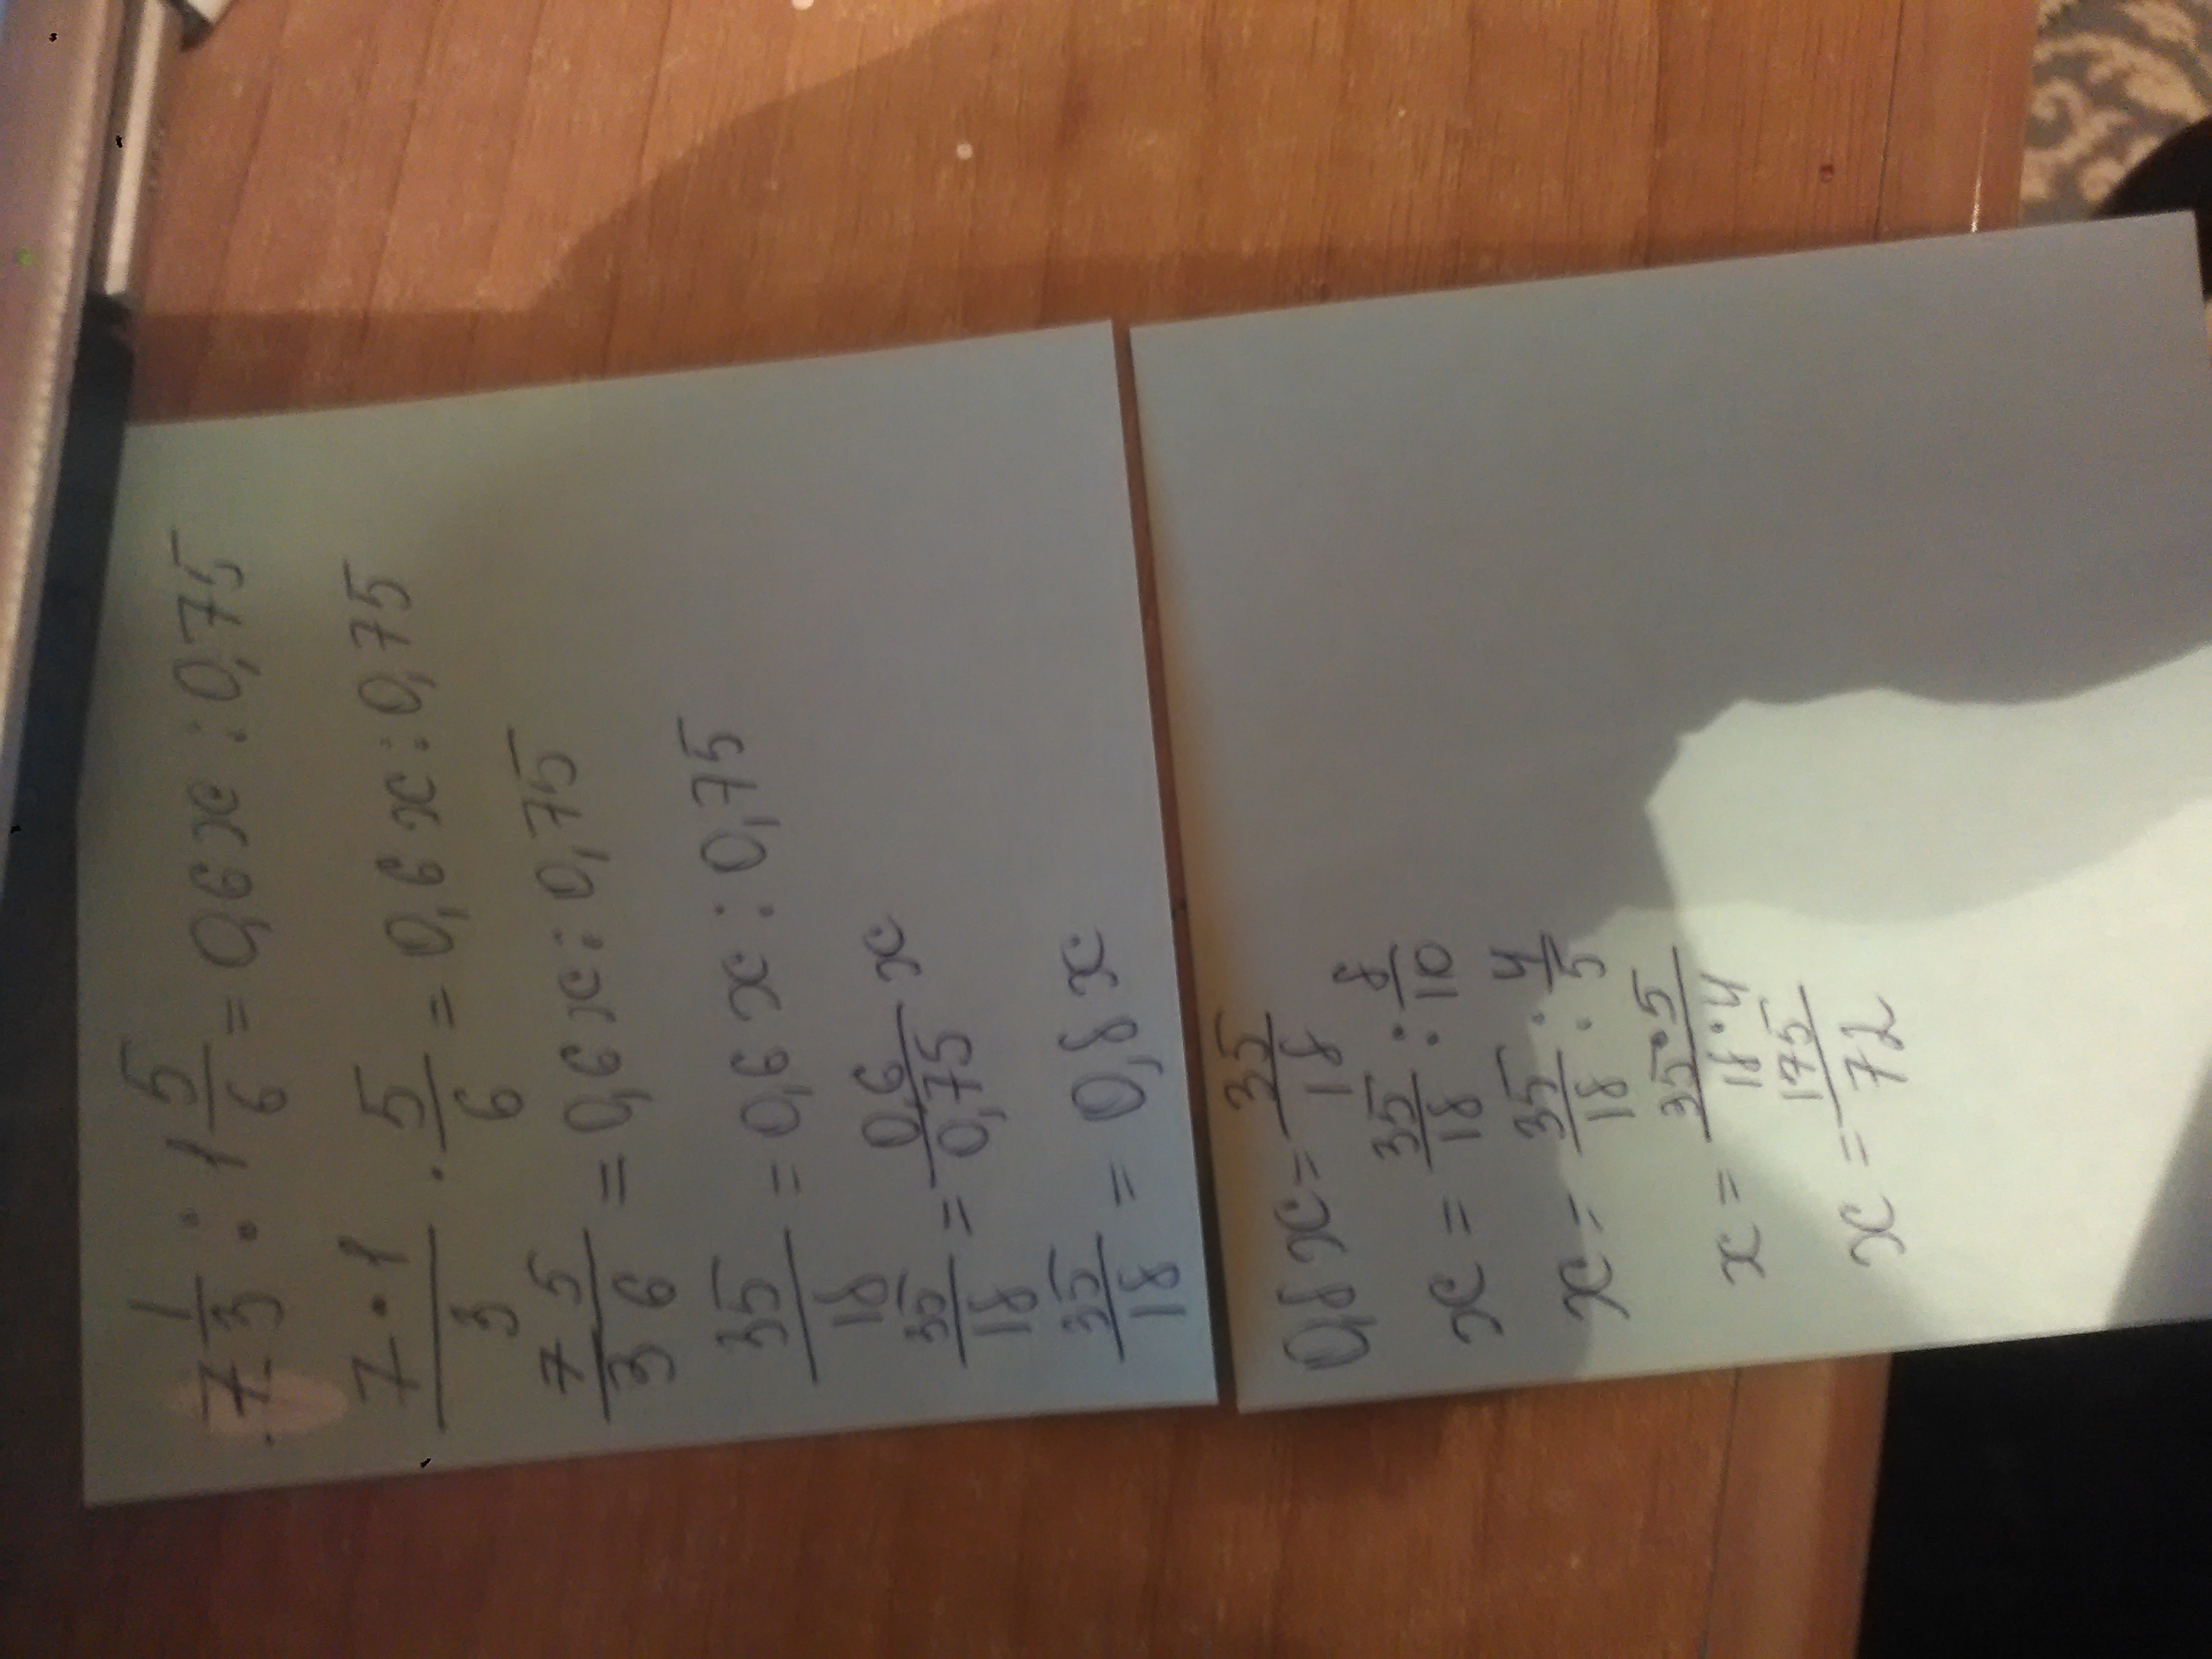 7 1/3 : 1 5/6 = 0,6x : 0,75
7·1/3 · 5/6 = 0,6x : 0,75
7 5/3 6 = 0,6x : 0,75
35/18 = 0,6x : 0,75
35/18 = 0,6/0,75 x
35/18 = 0,8x
0,8x = 35/18
x = 35/18 : 8/10
x = 35/18 : 4/5
x = 35·5/18·4
x = 175/72